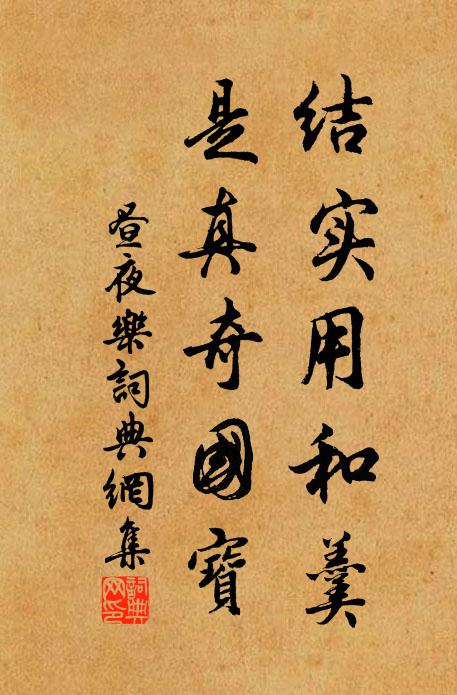 结实用和羹
是真奇國寶
昼夜樂詞典網集
詞典